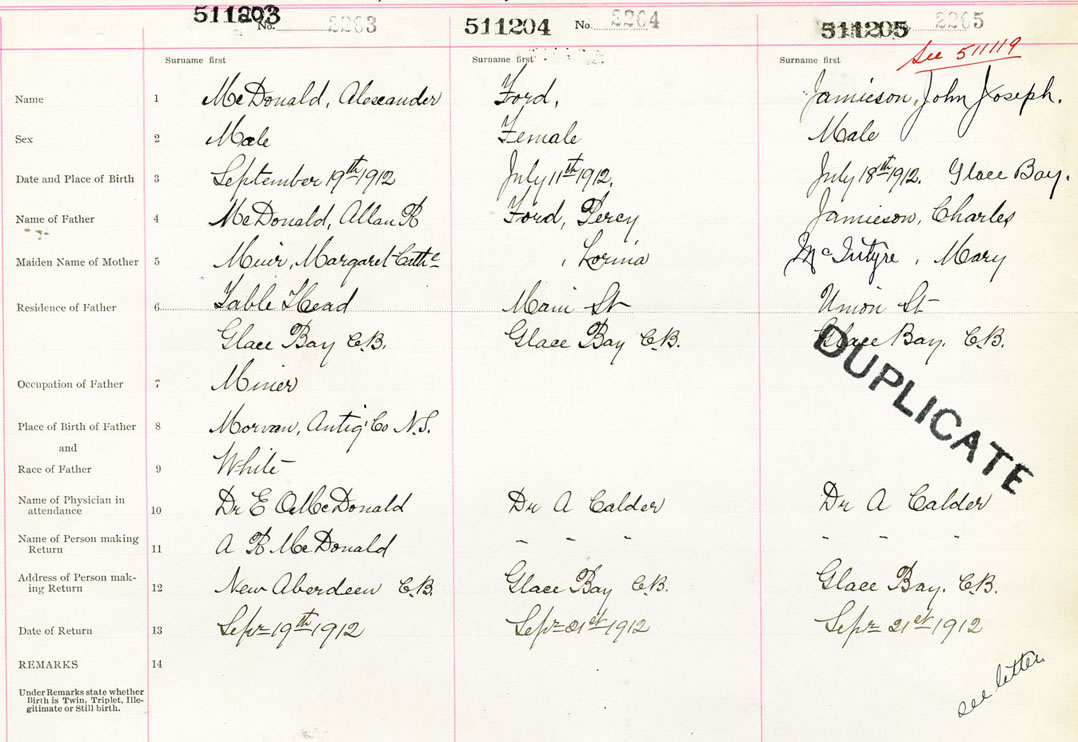 511203 No. 2263 511204 No. 2264 511205 2265
See 511119
Surname first Surname first Surname first
Name 1 McDonald, Alexander Ford, Jamieson, John Joseph.
Sex 2 Male Female Male
Date and Place of Birth 3 September 19th 1912 July 11th 1912. July 18th 1912. Glace Bay.
Name of Father 4 McDonald, Allan R Ford, Percy Jamieson, Charles
Maiden Name of Mother 5 Muir, Margaret Cathe , Lorina McIntyre, Mary
Residence of Father 6 Table Head Main St Union St
Glace Bay C.B. Glace Bay C.B. Glace Bay. C.B.
DUPLICATE
Occupation of Father 7 Miner
Place of Birth of Father 8 Morvan, Antig' Co N.S.
and
Race of Father 9 White
Name of Physician in
attendance 10 Dr E O McDonald Dr A Calder Dr A Calder
Name of Person making
Return 11 A R McDonald " " " " " "
Address of Person mak-
ing Return 12 New Aberdeen C.B. Glace Bay C.B. Glace Bay. C.B.
Date of Return 13 Sepr 19th 1912 Sepr 21st 1912 Sepr 21st 1912
REMARKS 14
Under Remarks state whether
Birth is Twin, Triplet, Ille-
gitimate or Still birth.
see letter